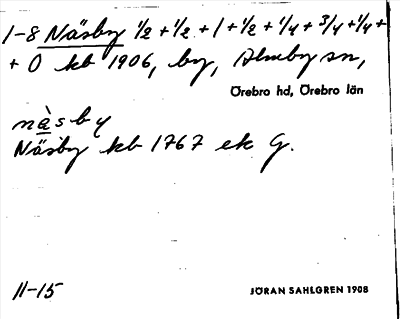 1-8 Näsby 1/2 + 1/2 + 1 + 1/2 + 1/4 + 3/4 + 1/4 +
+ 0 kb 1906, by, Almby sn,
Örebro hd, Örebro län
nàsby
Näsby kb 1767 ek G.
11-15
JÖRAN SAHLGREN 1908